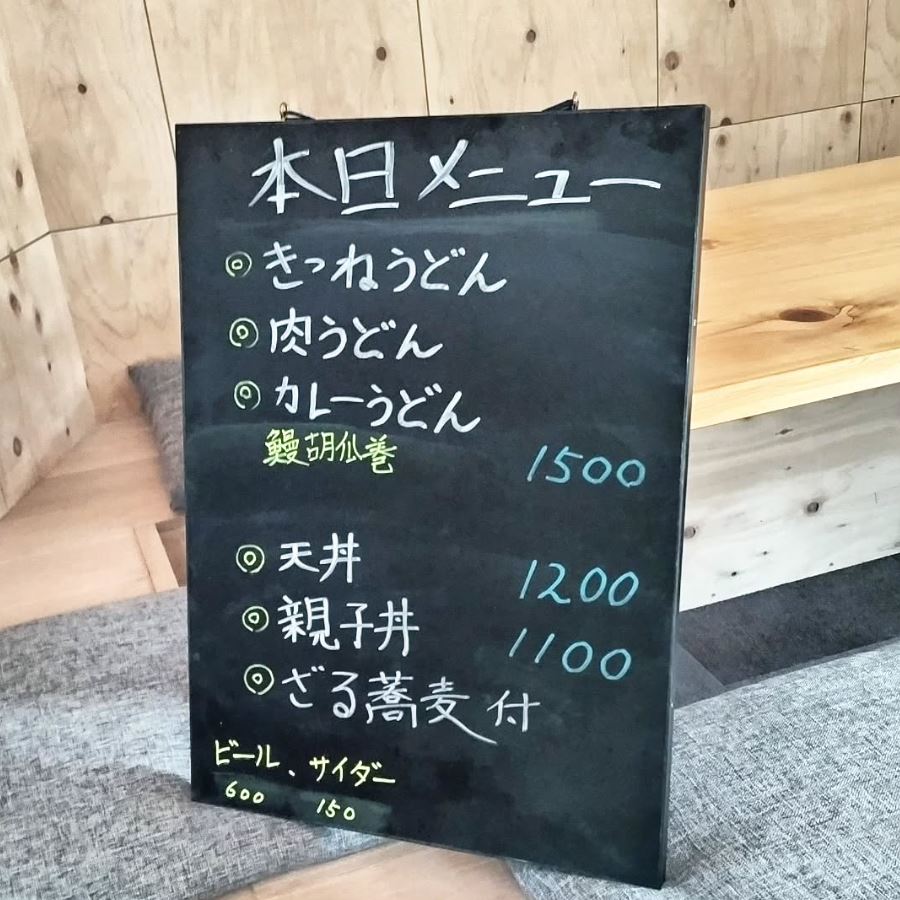 本日メニュー
◎きつねうどん
◎肉うどん
◎カレーうどん
鰻胡瓜巻 1500
◎天丼 1200
◎親子丼 1100
◎ざる蕎麦付
ビール、サイダー
600 150